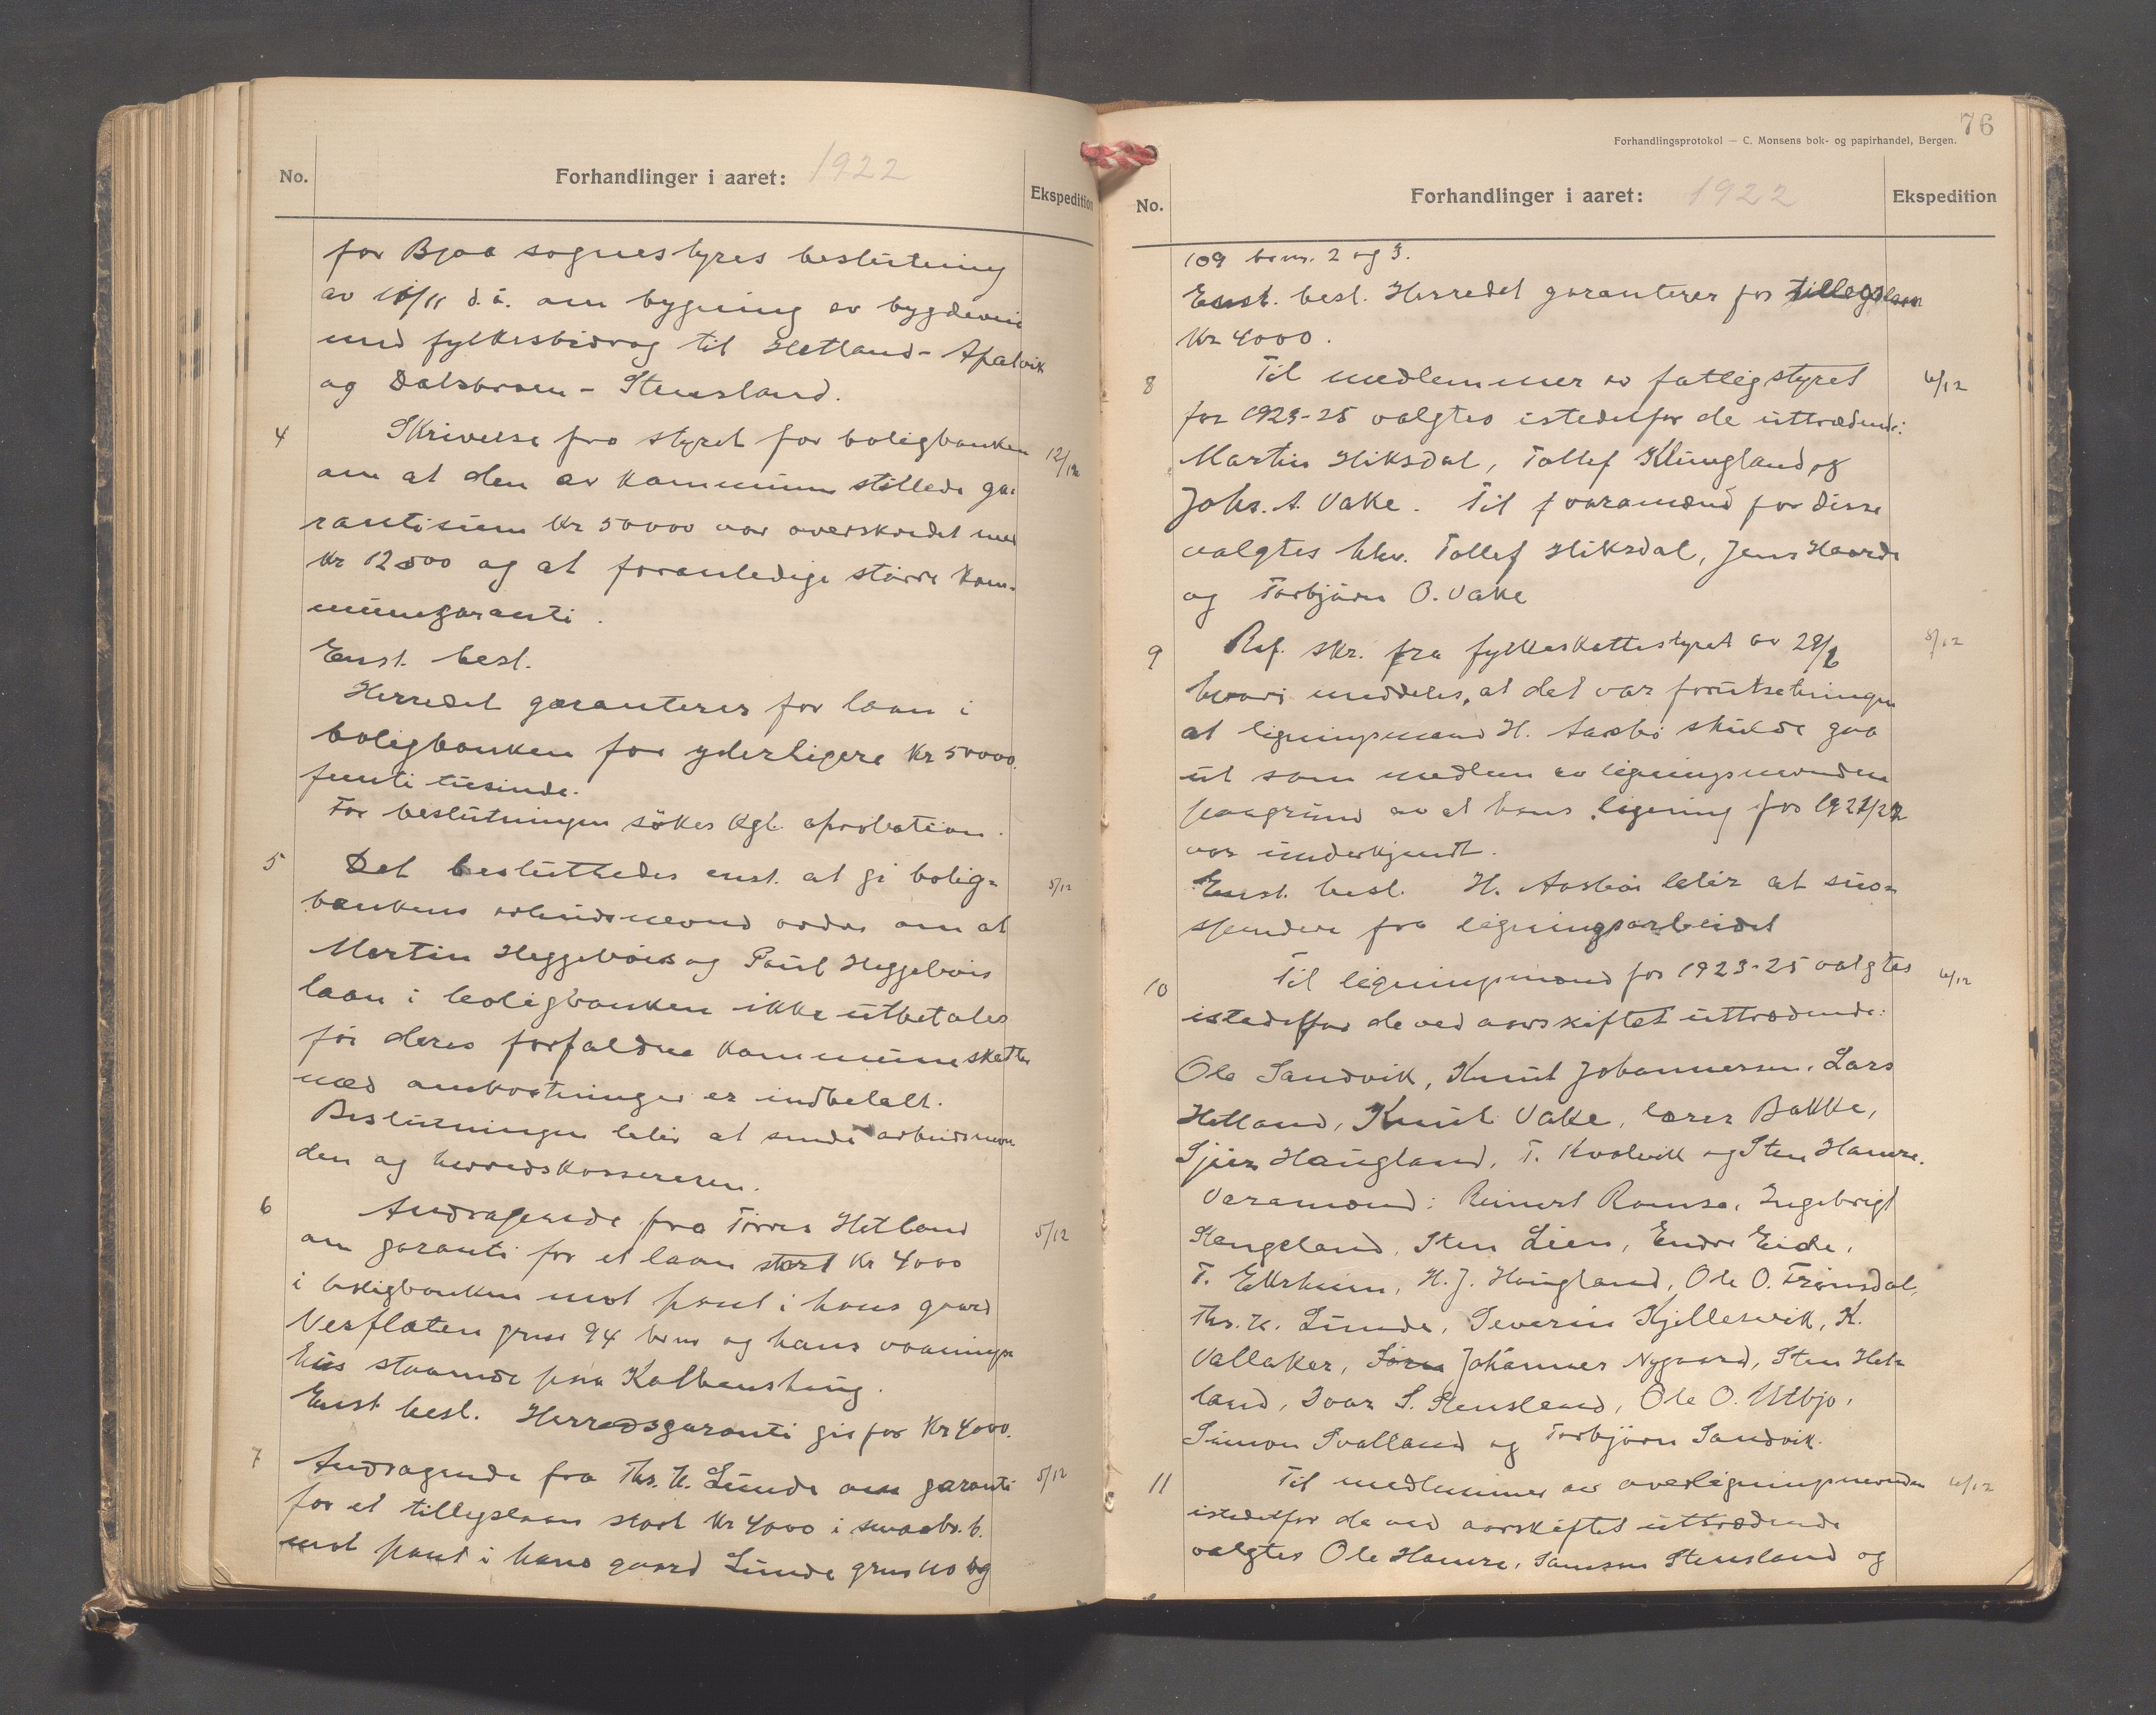 No. Forhandlinger i aaret: 1922 Ekspedition
for Bjoa sognestyres beslutning
av 16/11 d. å. om bygning av bygdevei
med fylkesbidrag til Hetland - Apalvik
og Dalsbroen - Stensland.
4 Skrivelse fra styret for boligbanken 12/12
om at den av kommunen stillede ga-
rantisum Kr 50000 var overskredet med
Kr 12500 og at foranledige större kom-
munegaranti.
Enst. besl.
Herredet garanterer for laan i
boligbanken for yderligere Kr 50000.
femti tusinde.
For beslutningen sökes kgl. aprobation.
5 Det besluttedes enst. at gi bolig- 5/12
bankens arbeidsnevnd ordre om at
Martin Heggebös og Paul Heggebös
laan i boligbanken ikke utbetales
för deres forfaldne kommuneskatter
med omkostninger er indbetalt.
Beslutningen blir at sende arbeidsnevn
den og herredskassereren.
6 Andragende fra Törres Hetland 5/12
om garanti for et laan stort Kr 4000
i boligbanken mot pant i hans gaard
Nesflaten grno 94 brno og hans vaanings
hus staaende paa Kolbenshaug.
Enst besl. Herredsgaranti gis for Kr 4000.
7 Andragende fra Ths. K. Lunde om garanti 5/12
for et tillegslaan stort Kr 4000 i smaabr. b.
mot pant i hans gaard Lunde grno 110 og
76
Forhandlingsprotokol — C. Monsens bok- og papirhandel, Bergen.
No. Forhandlinger i aaret: 1922 Ekspedition
109 brno. 2 og 3.
Enst. besl. Herredet garanterer for tillegslaan
Kr 4000.
8 Til medlemmer av fattigstyret 6/12
for 1923-25 valgtes istedetfor de uttrædende:
Martin Hiksdal, Tollef Klungland og
Johs. A. Vake. Til varamænd for disse
valgtes hhv. Tollef Hiksdal, Jens Haarde
og Torbjörn O. Vake
9 Ref. skr. fra fylkesskattestyret av 28/8 5/12
hvori meddeles, at det var forutsetningen
at ligningsmand H. Aasbö skulde gaa
ut som medlem av ligningsnevnden
paagrund av at hans ligning for 1921/22
var underkjendt.
Enst. besl. H. Aasbö blir at sus-
pendere fra ligningsarbeidet
10 Til ligningsmænd for 1923-25 valgtes 6/12
istedetfor de ved aarsskiftet uttrædende:
Ole Sandvik, Knut Johannessen, Lars
Hetland, Knut Vake, lærer Bakke,
Sjur Haugland, T. Kvalvik og Sten Hamre.
Varamænd: Reinert Ramsa, Ingebrigt
Stangeland, Sten Lien, Endre Eide,
T. Ekrheim, H. J. Haugland, Ole O. Frönsdal,
Ths. K. Lunde, Severin Kjellesvik, K.
Vallaker, Johannes Nygaard, Sten Het-
land, Ivar S. Stensland, Ole O. Utbjo,
Simon Svalland og Torbjörn Sandvik.
11 Til medlemmer av overligningsnevnden 6/12
istedetfor de ved aarsskiftet uttrædende
valgtes Ole Hamre, Samson Stensland og